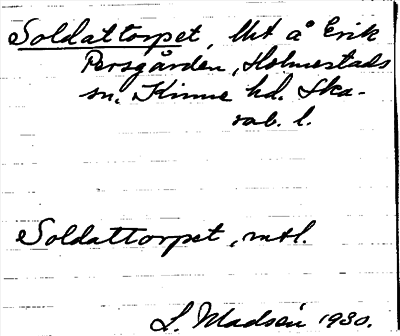 Soldattorpet, Utt å Erik
Persgården, Holmestads
sn. Kinne hd. Ska-
rab. l.
Soldattorpet, mtl.
L. Madsén 1930.